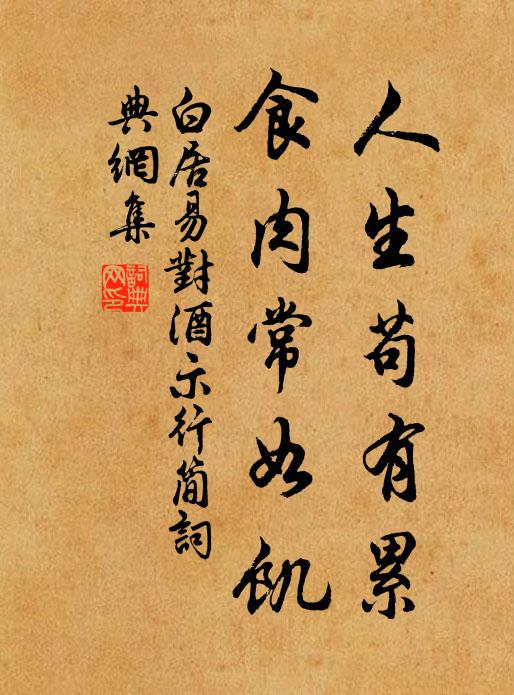 人生苟有累
食肉常如飢
白居易對酒示行簡詞
典網集
詞典網印